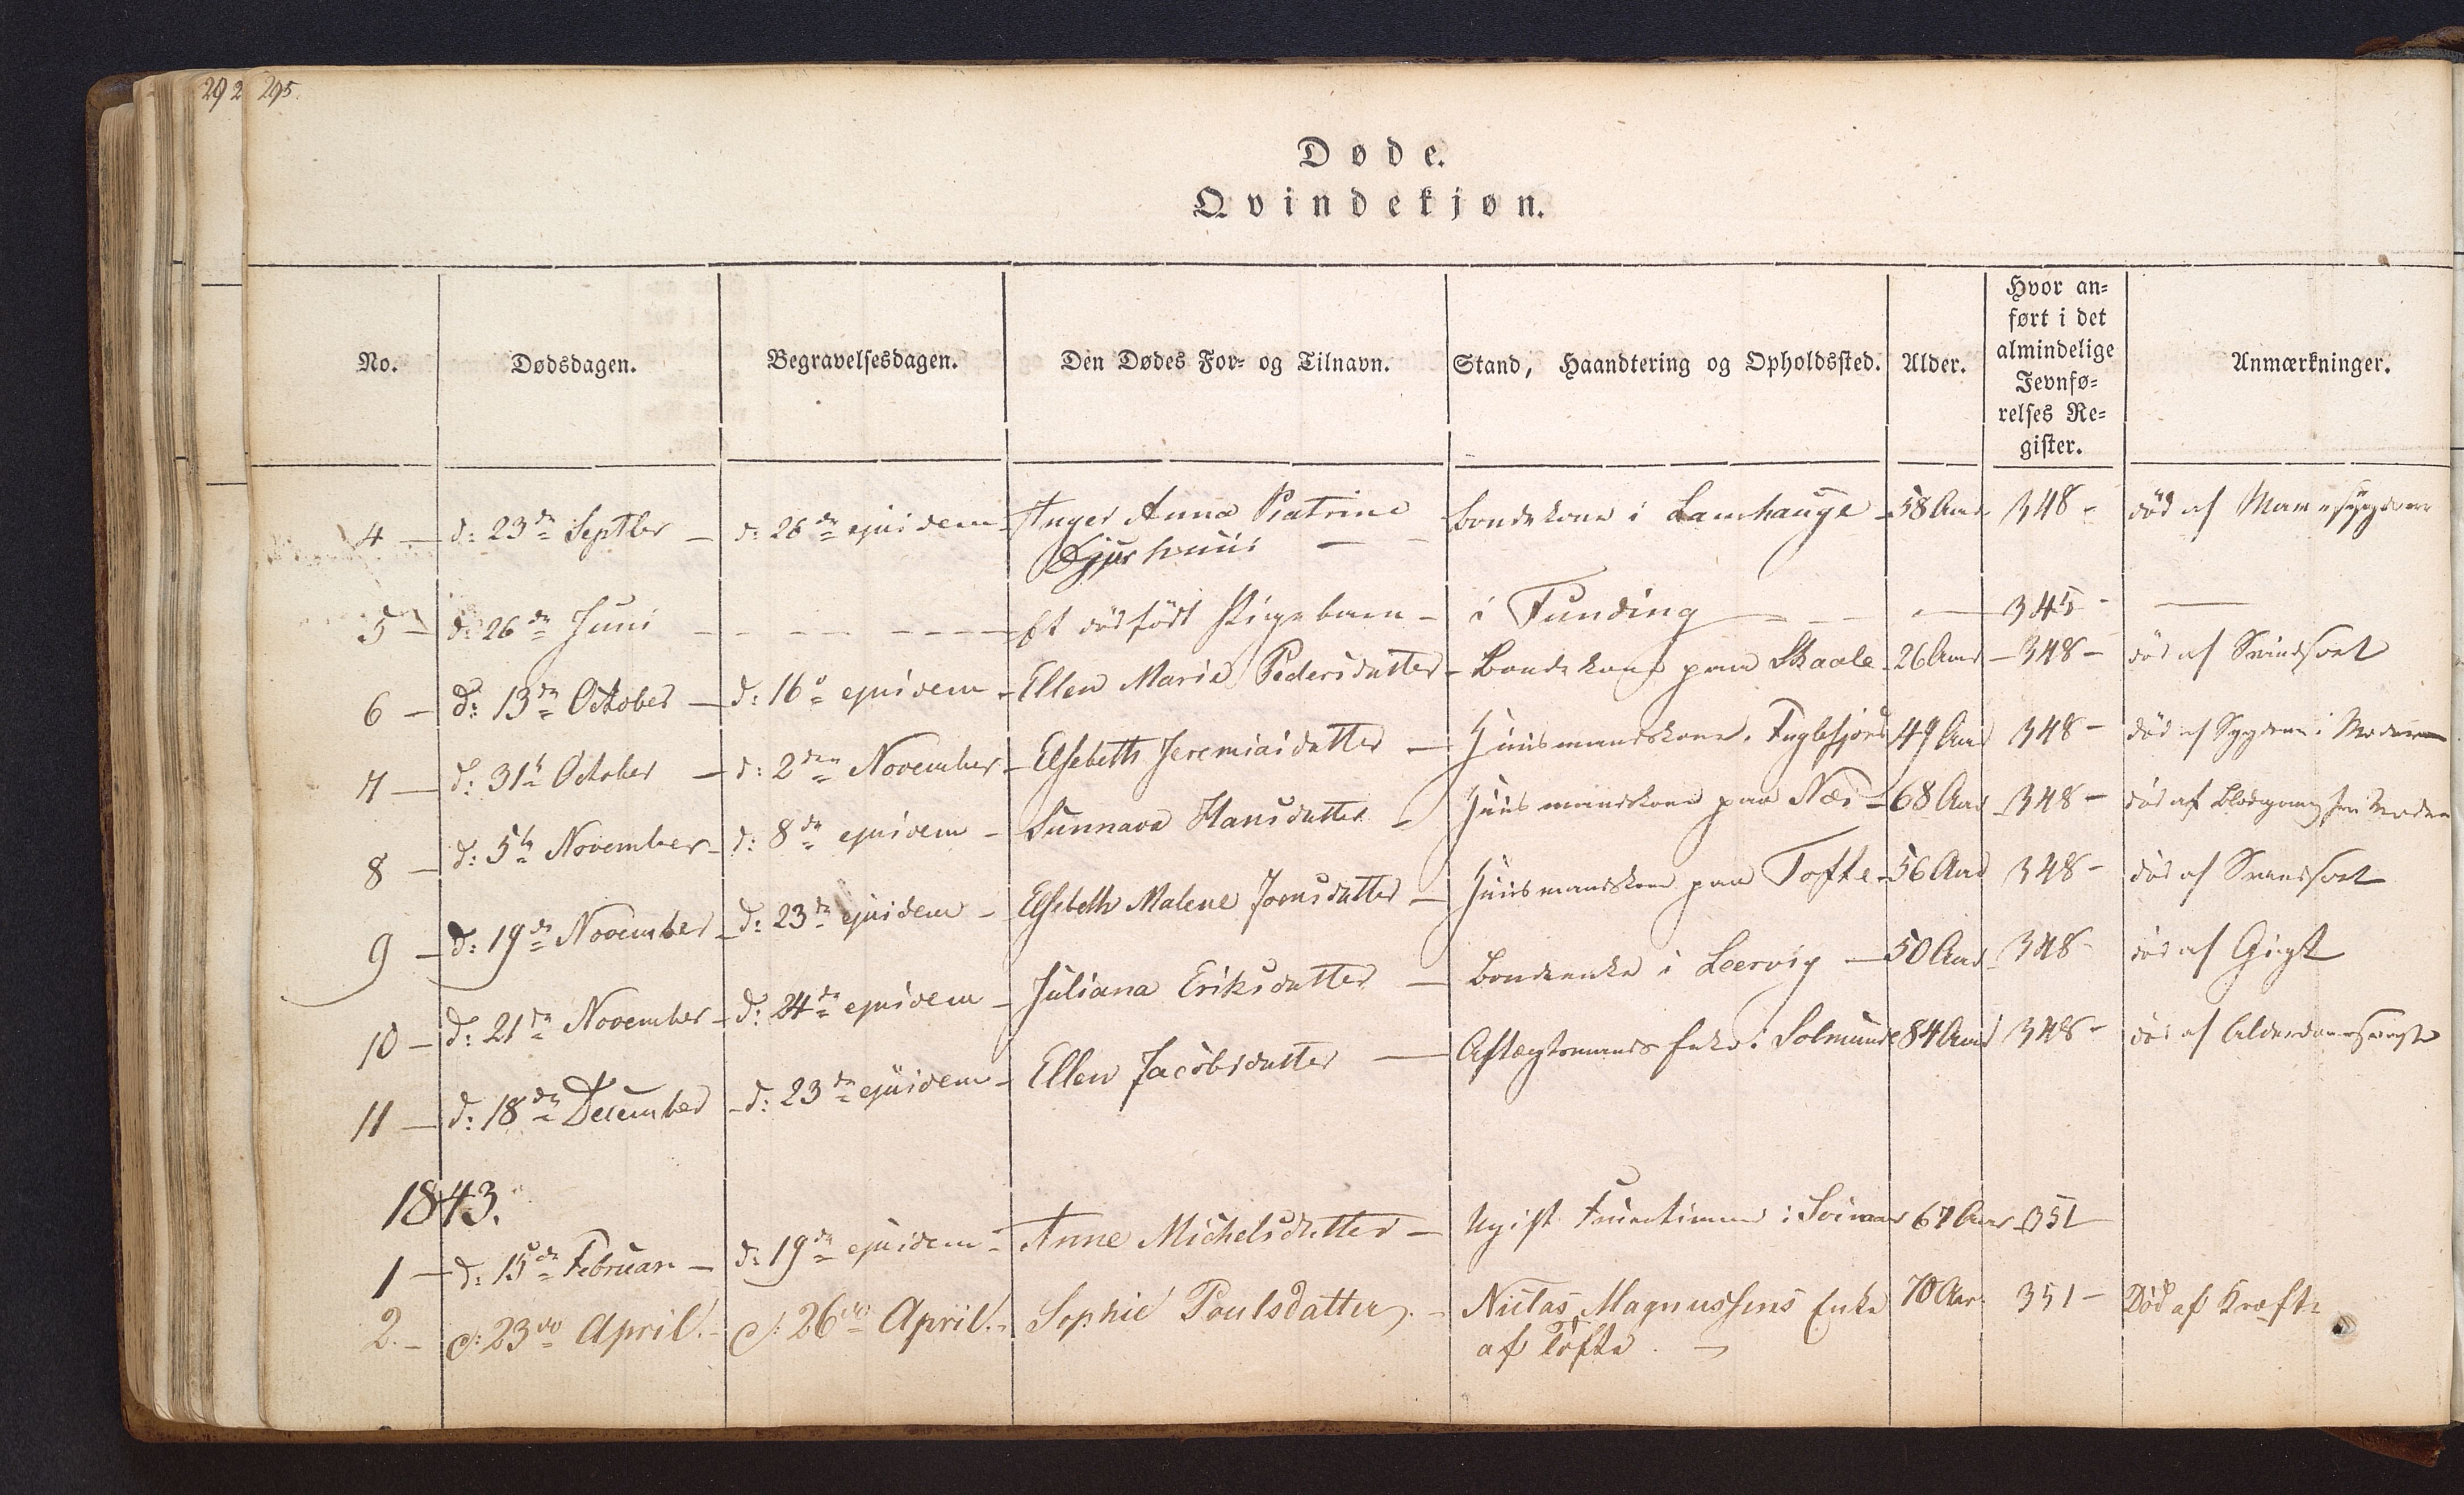 292 295.
Døde.
Qvindekjøn.
No. Dødsdagen. Begravelsesdagen. Den Dødes For- og Tilnavn. Stand, Haandtering og Opholdssted. Alder. Hvor an=
ført i det
almindelige
Jevnfø=
relses Re=
gister. Anmærkninger.
4 — d: 23de Septbr — d: 26de ejusdem — Inger Anna Katrine
Djurhuus — Bondekone i Lamhauge — 58 Aar 348 - død af
5 — d: 26de Juni — Et dødfødt Pigebarn — i Funding — 345 - —
6 — d: 13de October — d: 16de ejusdem — Ellen Marie Pedersdatter — Bondekone paa Skaale — 26 Aar — 348 — død af Svindsot
7 — d: 31te October — d: 2den November — Elsebeth Jeremiasdatter — Huusmandskone i Fuglefjord 49 Aar 348 — død af
8 — d: 5te November — d: 8de ejusdem — Sunnava Hansdatter — Huusmandskone paa Næs — 68 Aar 348 — død af Blodgang
9 — d: 19de November — d: 23de ejusdem — Elsebeth Malene Joensdatter — Huusmandskone paa Tofte — 56 Aar 348 - død af
10 — d: 21de November — d: 24de ejusdem — Juliana Eriksdatter — Bondeenke i Leervig — 50 Aar 348 død af Gigt
11 — d: 18de December — d: 23de ejusdem — Ellen Jacobsdatter — Aftægtsmands Enke i Solmunde 84 Aar 348 - død af
1843.
1 — d: 15de Februar — d: 19de ejusdem — Anne Michelsdatter — Ugift i 67 Aar 351
2. — d: 23de April. — d: 26de April. — Sophie Poulsdatter. — Niclas Magnussens Enke
af Tofte. — 70 Aar. 351 — Død af Kræft